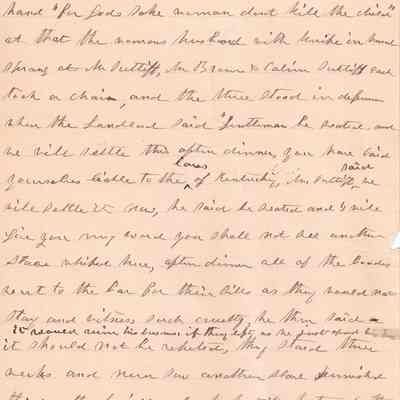 hand "for Gods sake woman dont kill the child"
at that the womans husband with knife in hand
sprang at Mr Sutliff, Mr Brown & Calvin Sutliff each
took a chair, and the three stood in defense
when the Landlord said "Gentlemen be seated and
we will settle this after dinner, you have laid
yourselves liable to the laws of Kentucky, Mr Sutliff, said we
will settle it now, he said be seated and I will
give you my word you shall not see another
slave whiped here, after dinner all of the
went to the bar for their bills as they would not
stay and witness such cruelty, he then said
it would ruin his business if they left, as he
it should not be repeated, they staid three
weeks and never saw another slave punished